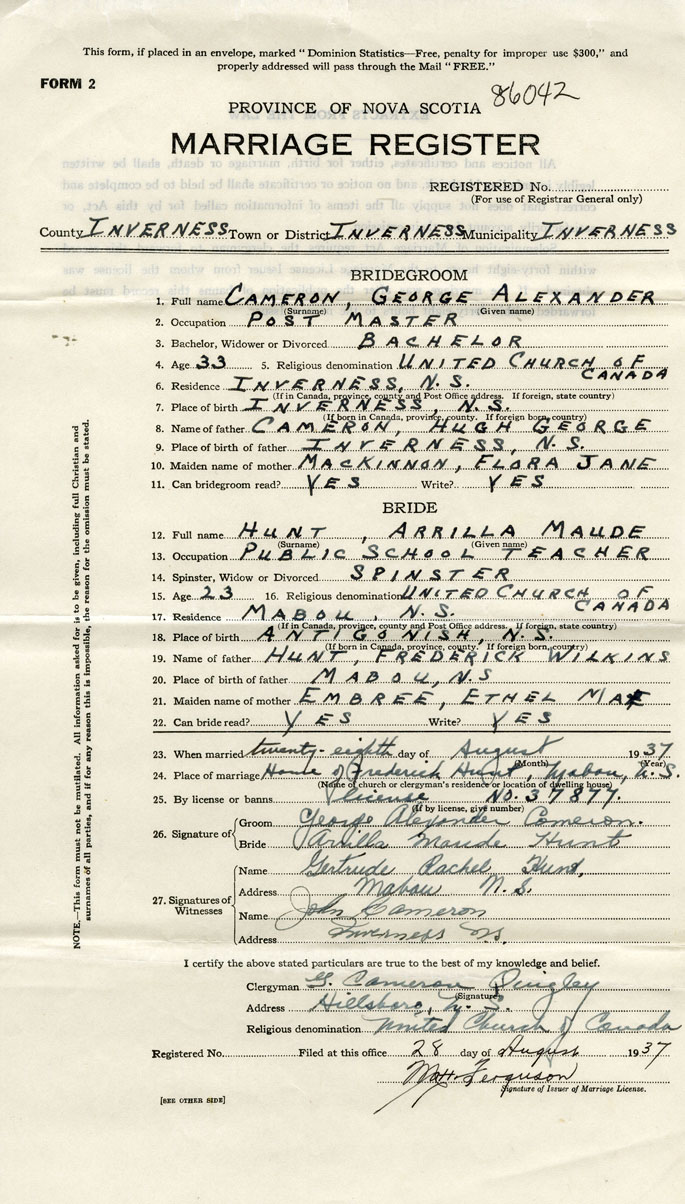 This form, if placed in an envelope, marked "Dominion Statistics—Free, penalty for improper use $300," and
properly addressed will pass through the Mail "FREE."
FORM 2
86042
PROVINCE OF NOVA SCOTIA
MARRIAGE REGISTER
REGISTERED No.
(For use of Registrar General only)
County INVERNESS Town or District INVERNESS Municipality INVERNESS
BRIDEGROOM
1. Full name CAMERON, GEORGE ALEXANDER
(Surname) (Given name)
2. Occupation POST MASTER
3. Bachelor, Widower or Divorced BACHELOR
4. Age 33 5. Religious denomination UNITED CHURCH OF
CANADA
6. Residence INVERNESS, N.S.
(If in Canada, province, county and Post Office address. If foreign, state country)
7. Place of birth INVERNESS, N.S.
(If born in Canada, province, county. If foreign born, country)
8. Name of father CAMERON, HUGH GEORGE
9. Place of birth of father INVERNESS, N.S.
10. Maiden name of mother MACKINNON, FLORA JANE
11. Can bridegroom read? YES Write? YES
BRIDE
12. Full name HUNT, ARRILLA MAUDE
(Surname) (Given name)
13. Occupation PUBLIC SCHOOL TEACHER
14. Spinster, Widow or Divorced SPINSTER
15. Age 23 16. Religious denomination UNITED CHURCH OF
CANADA
17. Residence MABOU, N.S.
(If in Canada, province, county and Post Office address. If foreign, state country)
18. Place of birth ANTIGONISH, N.S.
(If born in Canada, province, county. If foreign born, country)
19. Name of father HUNT, FREDERICK WILKINS
20. Place of birth of father MABOU, N.S
21. Maiden name of mother EMBREE, ETHEL MAE
22. Can bride read? YES Write? YES
23. When married twenty-eighth day of August 1937
(Month) (Year)
24. Place of marriage Home of Frederick Hunt, Mabou, N.S.
(Name of church or clergyman's residence or location of dwelling house)
25. By license or banns license No. 37877.
(If by license, give number)
26. Signature of Groom George Alexander Cameron.
Bride Arrilla Maude Hunt
27. Signatures of Witnesses
Name Gertrude Rachel Hunt,
Address Mabou N.S.
Name John Cameron
Address Inverness N.S.
I certify the above stated particulars are true to the best of my knowledge and belief.
Clergyman G. Cameron Quigley
(Signature)
Address Hillsboro, N.S.
Religious denomination United Church of Canada
Registered No. Filed at this office 28 day of August 1937
Ferguson
Signature of Issuer of Marriage License.
[SEE OTHER SIDE]
NOTE.—This form must not be mutilated. All information asked for is to be given, including full Christian and
surnames of all parties, and if for any reason this is impossible, the reason for the omission must be stated.